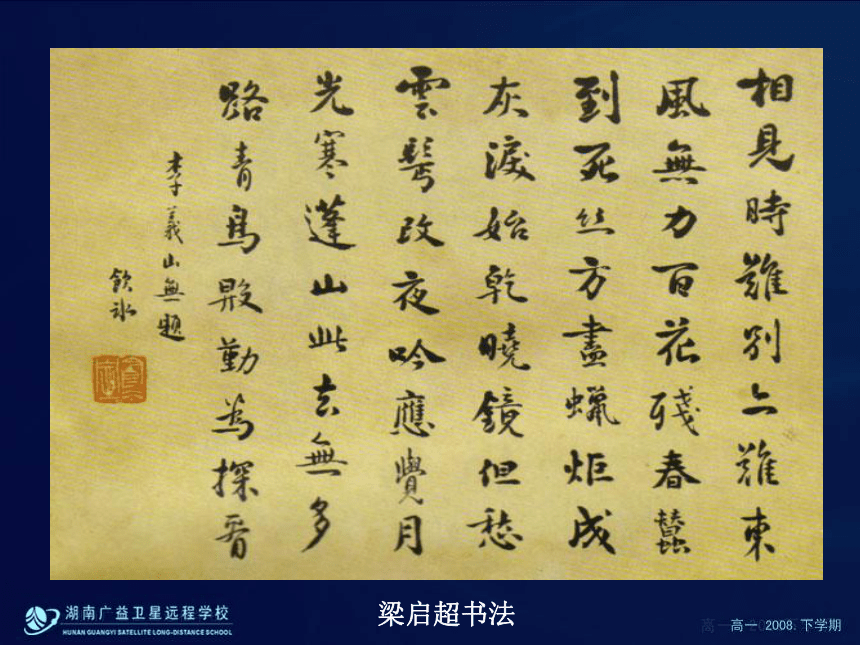 相見時難別亦難東
風無力百花殘春蠶
到死丝方盡蠟炬成
灰淚始乾曉鏡但愁
雲鬢改夜吟應覺月
光寒蓬山此去無多
路青鳥殷勤為探看
李義山無題
飲冰
湖南广益卫星远程学校
HUNAN GUANGYI SATELLITE LONG-DISTANCE SCHOOL
梁启超书法
高一 2008.下学期